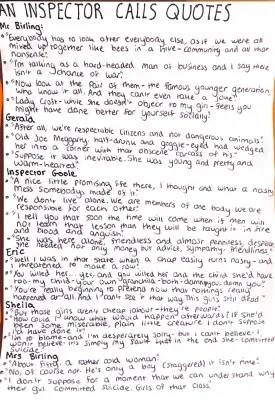 AN INSPECTOR CALLS QUOTES
Mr Birling:
"Everybody has to look after everybody else, as if we were all
mixed up together like bees in a hive - community and all that
nonsense"
"I'm talking as a hard-headed man of business and I say there
isn't a chance of war"
"Now look at the pair of them - the famous younger generation
who know it all. And they can't even take a joke"
"Lady Croft - while she doesn't object to my girl - feels you
might have done better for yourself socially"
Gerald
"After all, we're respectable citizens and not dangerous animals"
"Old Joe Meggarty, half-drunk and goggle-eyed had wedged
her into a corner with that obscene carcass of his"
"Suppose it was inevitable. She was young and pretty and
warm-hearted"
Inspector Goole
"A nice little promising life there, I thought and what a nasty
mess somebody's made of it"
"We don't live alone. We are members of one body. We are
responsible for each other"
"I tell you that soon the time will come when if men will
not learn that lesson then they will be taught it in fire
and blood and anguish"
"She was here alone, friendless and almost penniless, desperate
she not only money but advice, sympathy, friendliness"
Eric
"Well I was in that state when a chap easily turns nasty - and
threatened to make a row"
"You killed her - yes, and you killed her and the child she'd have
too - my child - your own grandchild - both - damn you, damn you"
"You're beginning to pretend now that nothing's really
happened at all. And I can't see it that way. This girl's still dead"
Sheila
"But those girls aren't cheap labour - they're people"
"How could I know what would happen afterwards? If she'd
been some miserable, plain little creature I don't suppose
I'd have done it"
"I'm to blame - and I'm desperately sorry - but I can't believe - I
won't believe - it's simply my fault that in the end she - committed
suicide"
Mrs Birling
"About fifty, a rather cold woman"
"No, of course not. He's only a boy (staggered) it isn't true"
"I don't suppose for a moment that we can understand why
the girl committed suicide. Girls of that class"